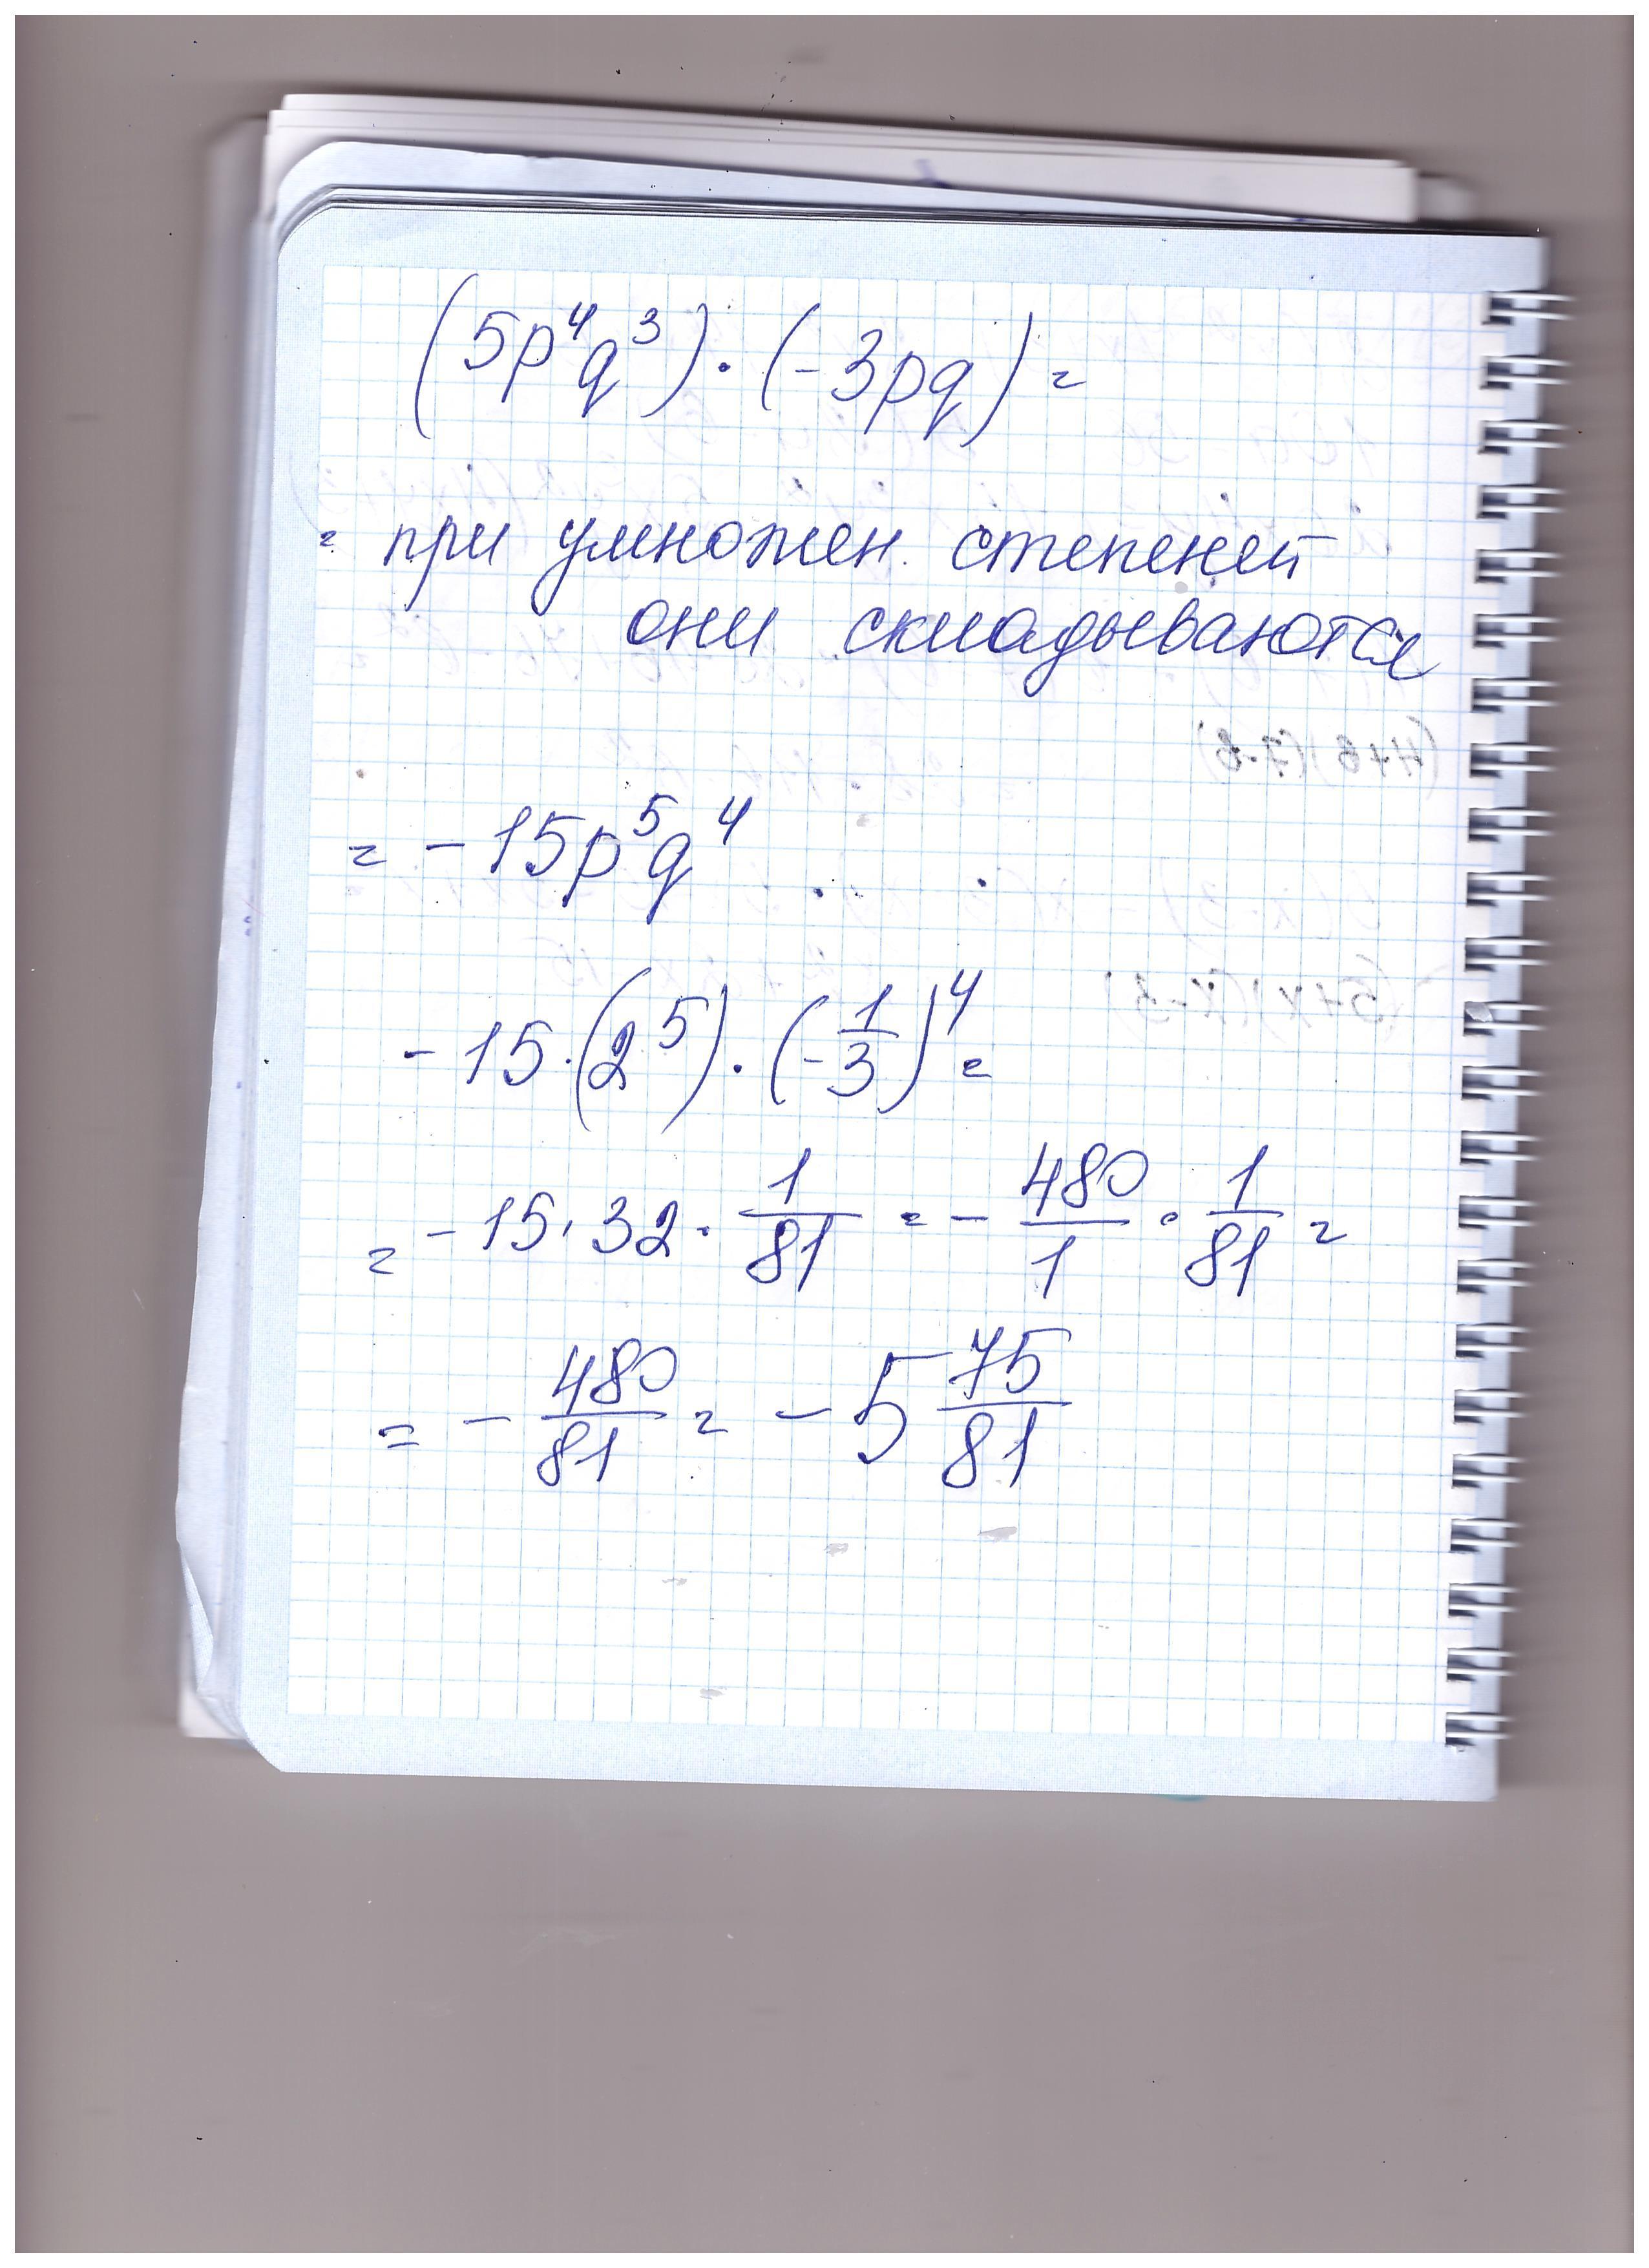 (5p⁴q³)·(-3pq)=
= при умножен. степеней
они складываются
(4+в)(7-в)
= -15p⁵q⁴
-15·(2⁵)·(-1/3)⁴=
= -15·32·1/81 = -480/1·1/81=
= -480/81 = -5 75/81